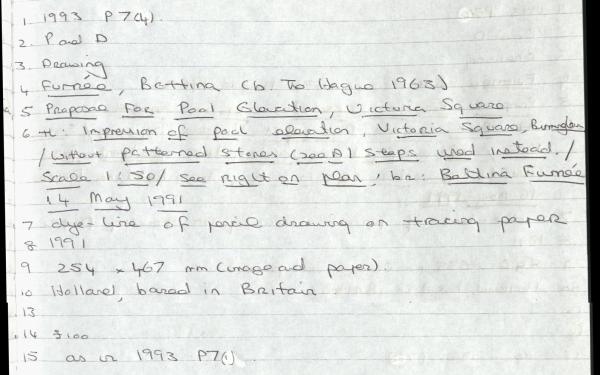 1 1993 P7(4).
2. P and D
3. Drawing
4 Furnée, Bettina (b. The Hague 1963)
5 Proposal for Pool Elevation, Victoria Square
6 tl: Impression of pool elevation, Victoria Square, Birmingham
/ without patterned stones (zoo A) steps used instead. /
Scale 1:50 / see right on plan; br: Bettina Furnée
14 May 1991
7 dye-line of pencil drawing on tracing paper
8 1991
9 254 x 467 mm (image and paper).
10 Holland, based in Britain
13
14 £100
15 as in 1993 P7(1).